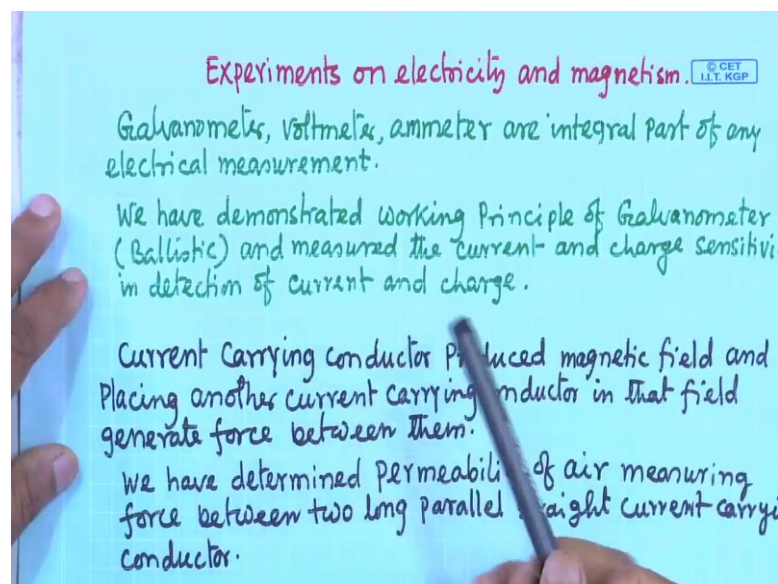 Experiments on electricity and magnetism.
© CET
I.I.T. KGP
Galvanometer, voltmeter, ammeter are integral part of any
electrical measurement.
We have demonstrated working Principle of Galvanometer
(Ballistic) and measured the current and charge sensitivi
in detection of current and charge.
Current Carrying conductor Produced magnetic field and
Placing another current carrying nductor in that field
generate force between them.
We have determined permeabili of air measuring
force between two long parallel straight current carryi
conductor.